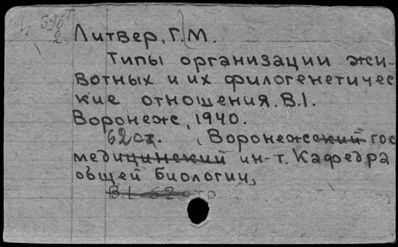 Литвер, Г. М.
Типы организации жи-
вотных и их филогенетичес
кие отношения. В.1.
Воронеж, 1940.
62 с., Воронежский гос
медицинский ин-т. Кафедра
общей биологии,
В.1. 62